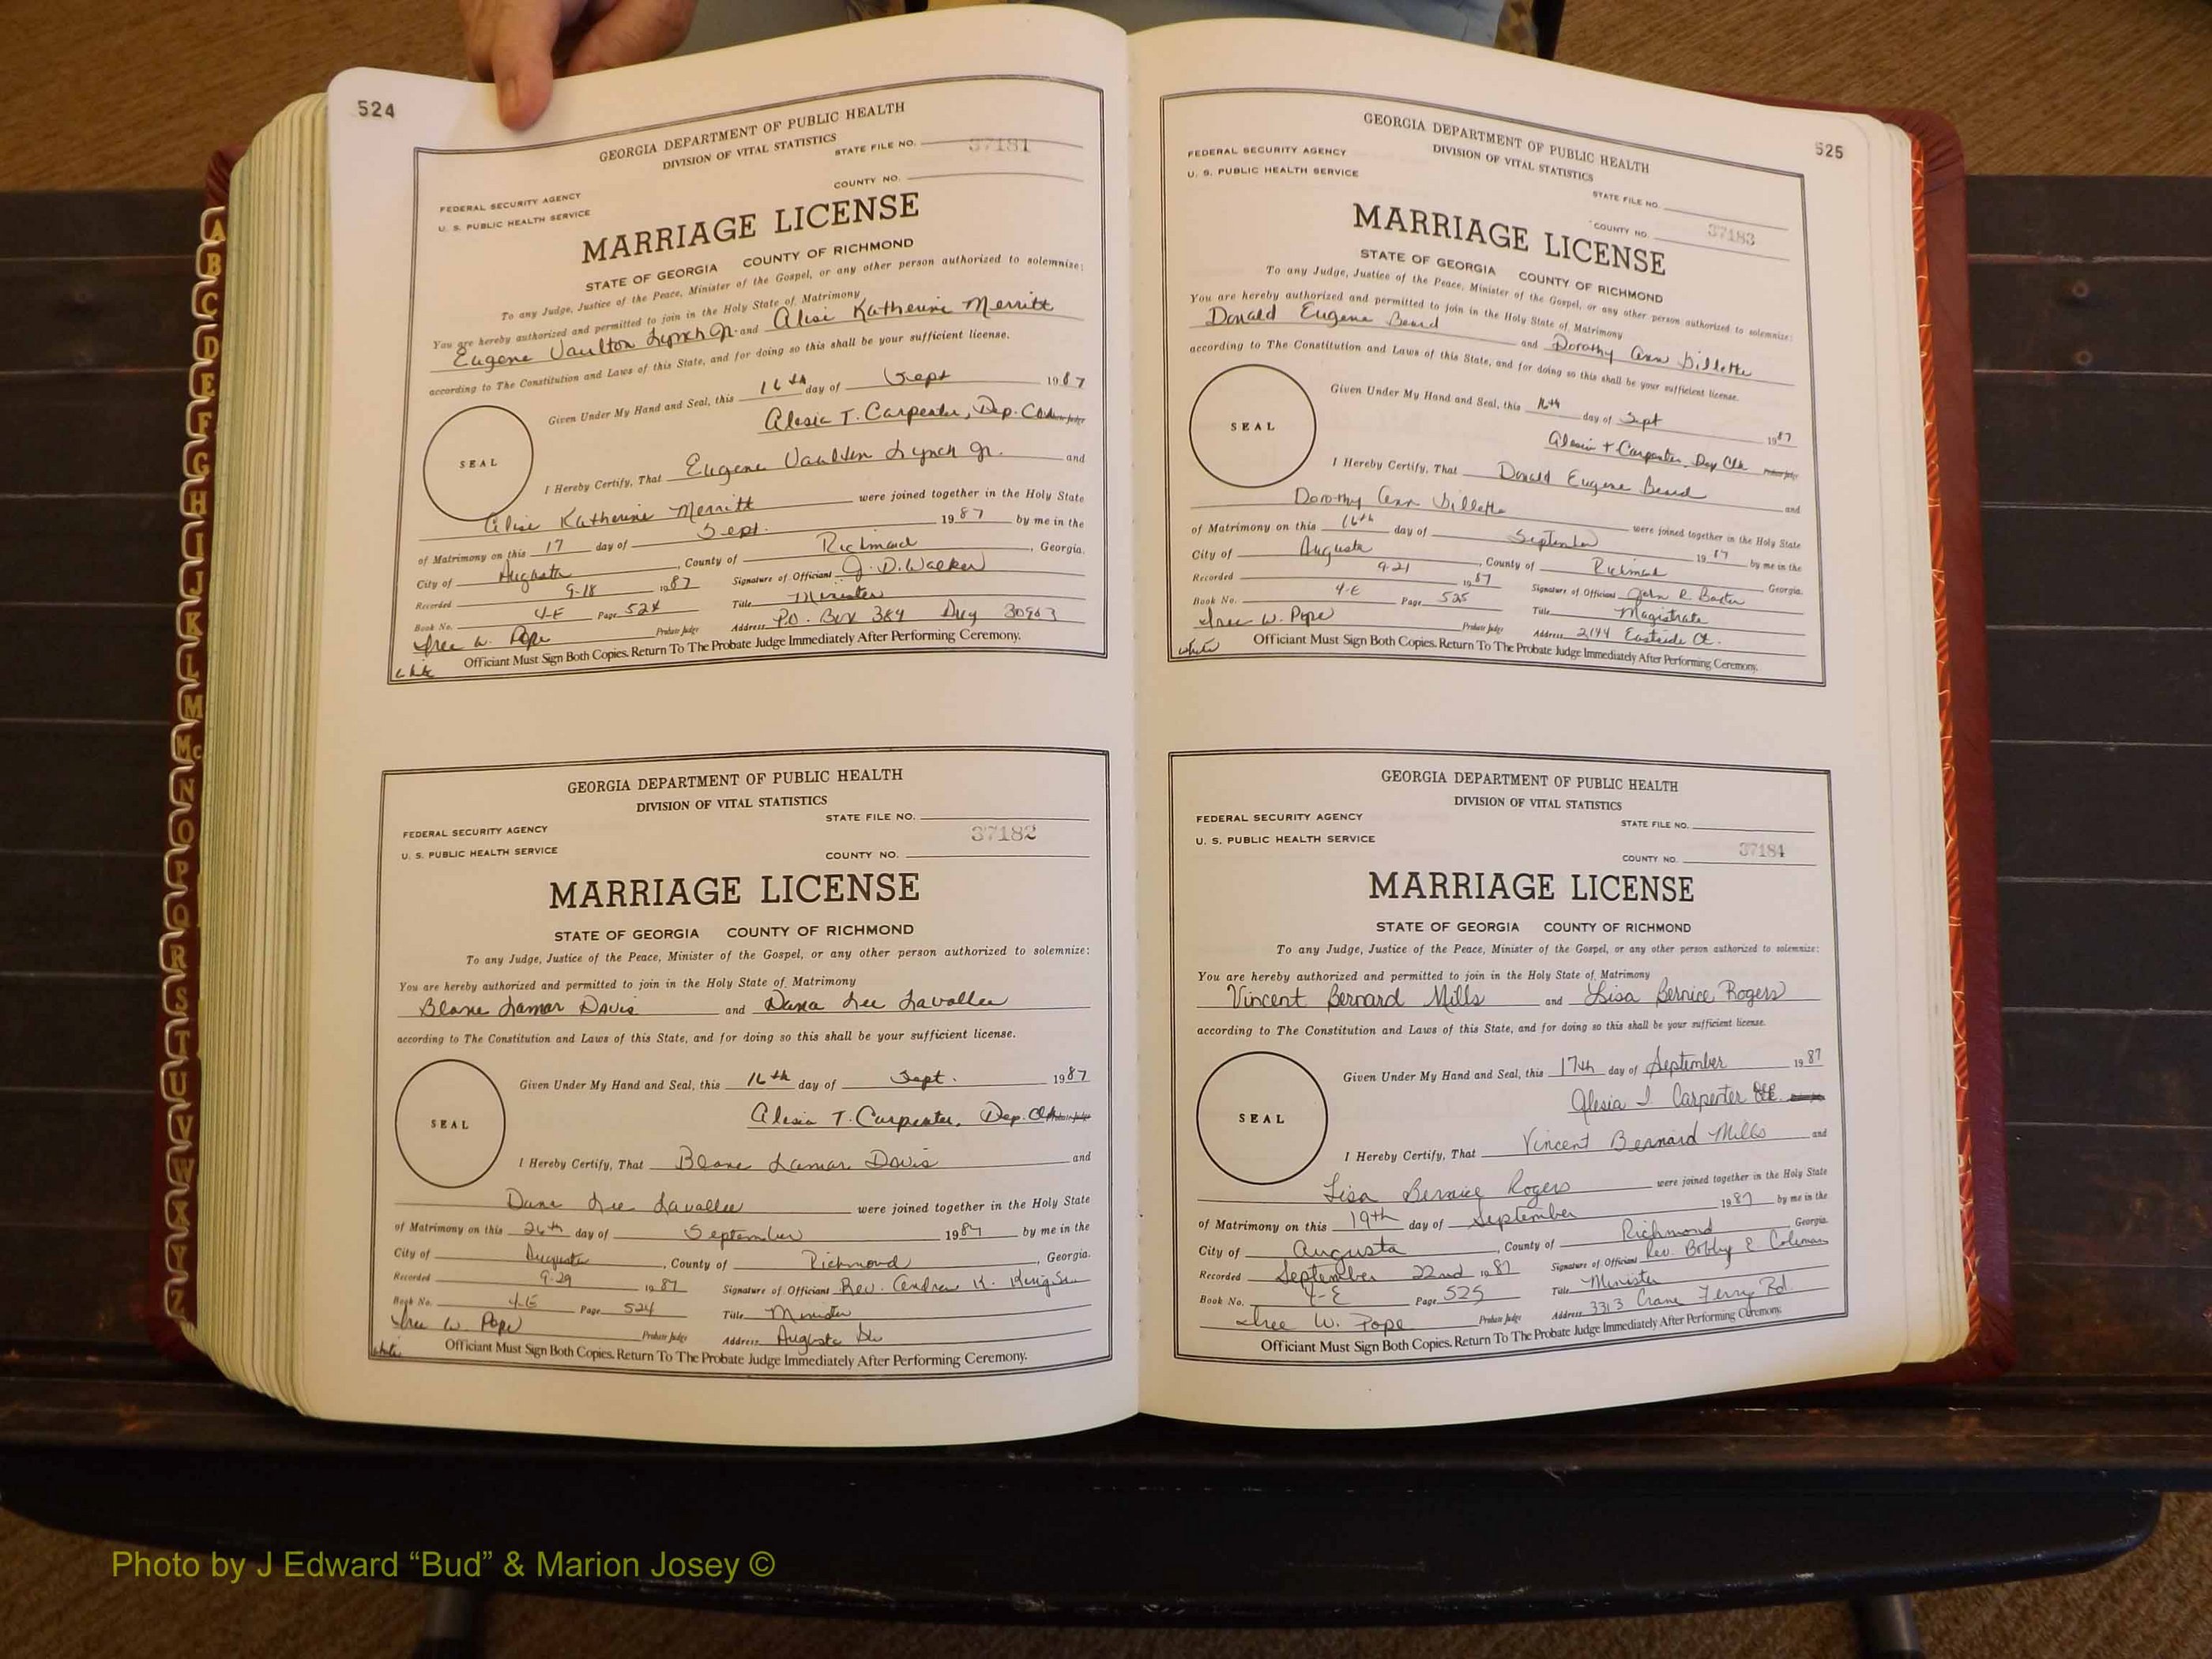 524
GEORGIA DEPARTMENT OF PUBLIC HEALTH
DIVISION OF VITAL STATISTICS
STATE FILE NO. 37181
COUNTY NO.
FEDERAL SECURITY AGENCY
U. S. PUBLIC HEALTH SERVICE
MARRIAGE LICENSE
STATE OF GEORGIA COUNTY OF RICHMOND
To any Judge, Justice of the Peace, Minister of the Gospel, or any other person authorized to solemnize:
You are hereby authorized and permitted to join in the Holy State of Matrimony
Eugene Vaulton Lynch Jr. and Alise Katherine Merritt
according to The Constitution and Laws of this State, and for doing so this shall be your sufficient license.
Given Under My Hand and Seal, this 16th day of Sept 1987
Alesia T. Carpenter, Dep. Clk
SEAL
I Hereby Certify, That Eugene Vaulton Lynch Jr. and
Alise Katherine Merritt were joined together in the Holy State
of Matrimony on this 17 day of Sept. 1987 by me in the
City of Augusta, County of Richmond, Georgia.
Recorded 9-18 1987 Signature of Officiant J. D. Walker
Book No. 4-E Page 524 Title Minister
Isaac W. Pope Probate Judge Address P.O. Box 389 Aug 30903
Officiant Must Sign Both Copies. Return To The Probate Judge Immediately After Performing Ceremony.
white
GEORGIA DEPARTMENT OF PUBLIC HEALTH
DIVISION OF VITAL STATISTICS
STATE FILE NO.
FEDERAL SECURITY AGENCY
37182
U. S. PUBLIC HEALTH SERVICE
COUNTY NO.
MARRIAGE LICENSE
STATE OF GEORGIA COUNTY OF RICHMOND
To any Judge, Justice of the Peace, Minister of the Gospel, or any other person authorized to solemnize:
You are hereby authorized and permitted to join in the Holy State of Matrimony
Blane Lamar Davis and Dana Lee Lavallee
according to The Constitution and Laws of this State, and for doing so this shall be your sufficient license.
Given Under My Hand and Seal, this 16th day of Sept. 1987
Alesia T. Carpenter, Dep. Clk
SEAL
I Hereby Certify, That Blane Lamar Davis and
Dana Lee Lavallee were joined together in the Holy State
of Matrimony on this 26th day of September 1987 by me in the
City of Augusta, County of Richmond, Georgia.
Recorded 9-29 1987 Signature of Officiant Rev. Andrew K.
Book No. 4-E Page 524 Title Minister
W. Pope Probate Judge Address Augusta
Officiant Must Sign Both Copies. Return To The Probate Judge Immediately After Performing Ceremony.
white
525
GEORGIA DEPARTMENT OF PUBLIC HEALTH
DIVISION OF VITAL STATISTICS
FEDERAL SECURITY AGENCY
U. S. PUBLIC HEALTH SERVICE
STATE FILE NO.
COUNTY NO. 37183
MARRIAGE LICENSE
STATE OF GEORGIA COUNTY OF RICHMOND
To any Judge, Justice of the Peace, Minister of the Gospel, or any other person authorized to solemnize:
You are hereby authorized and permitted to join in the Holy State of Matrimony
Donald Eugene Beard and Dorothy Ann Gillette
according to The Constitution and Laws of this State, and for doing so this shall be your sufficient license.
Given Under My Hand and Seal, this 16th day of Sept 1987
Alesia T Carpenter, Dep Clk
SEAL
I Hereby Certify, That Donald Eugene Beard and
Dorothy Ann Gillette were joined together in the Holy State
of Matrimony on this 16th day of September 1987 by me in the
City of Augusta, County of Richmond Georgia.
Recorded 9-21 1987 Signature of Officiant John R. Baxter
Book No. 4-E Page 525 Title Magistrate
W. Pope Probate Judge Address 2144 Eastside Ct.
Officiant Must Sign Both Copies. Return To The Probate Judge Immediately After Performing Ceremony.
white
GEORGIA DEPARTMENT OF PUBLIC HEALTH
DIVISION OF VITAL STATISTICS
FEDERAL SECURITY AGENCY
STATE FILE NO.
U. S. PUBLIC HEALTH SERVICE
COUNTY NO. 37184
MARRIAGE LICENSE
STATE OF GEORGIA COUNTY OF RICHMOND
To any Judge, Justice of the Peace, Minister of the Gospel, or any other person authorized to solemnize:
You are hereby authorized and permitted to join in the Holy State of Matrimony
Vincent Bernard Mills and Lisa Bernice Rogers
according to The Constitution and Laws of this State, and for doing so this shall be your sufficient license.
Given Under My Hand and Seal, this 17th day of September 1987
Alesia T. Carpenter
SEAL
I Hereby Certify, That Vincent Bernard Mills and
Lisa Bernice Rogers were joined together in the Holy State
of Matrimony on this 19th day of September 1987 by me in the
City of Augusta, County of Richmond Georgia.
Recorded September 22nd 1987 Signature of Officiant Rev. Bobby E. Coleman
Book No. 4-E Page 525 Title Minister
W. Pope Probate Judge Address 3313 Crane Ferry Rd.
Officiant Must Sign Both Copies. Return To The Probate Judge Immediately After Performing Ceremony.
A
B
C
D
E
F
G
H
I
J
K
L
M
Mc
N
O
P
Q
R
S
T
U
V
W
X
Y
Z
Photo by J Edward “Bud” & Marion Josey ©